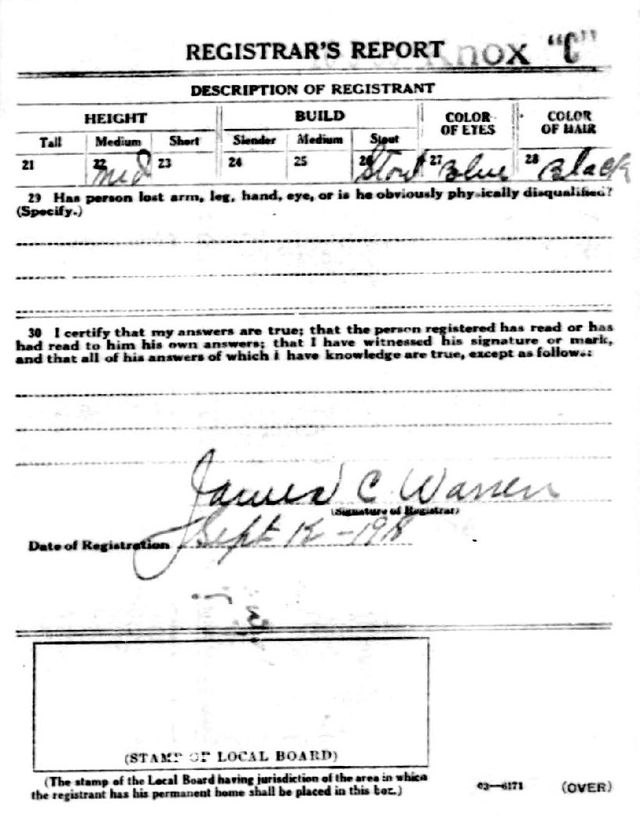 REGISTRAR'S REPORT Knox "C"
DESCRIPTION OF REGISTRANT
HEIGHT BUILD COLOR OF EYES COLOR OF HAIR
Tall Medium Short Slender Medium Stout
21 22 Med 23 24 25 26 Stout 27 Blue 28 Black
29 Has person lost arm, leg, hand, eye, or is he obviously physically disqualified?
(Specify.)
30 I certify that my answers are true; that the person registered has read or has
had read to him his own answers; that I have witnessed his signature or mark,
and that all of his answers of which I have knowledge are true, except as follows:
James C Warren
(Signature of Registrar)
Date of Registration Sept 12-1918
(STAMP OF LOCAL BOARD)
(The stamp of the Local Board having jurisdiction of the area in which
the registrant has his permanent home shall be placed in this box.)
03—6171 (OVER)